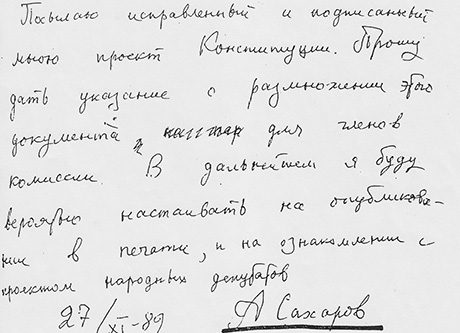 Посылаю исправленный и подписанный
мною проект Конституции. Прошу
дать указание о размножении этого
документа для членов
комиссии. В дальнейшем я буду
вероятно настаивать на опубликова-
нии в печати, и на ознакомлении с
проектом народных депутатов
27/XI-89 А Сахаров